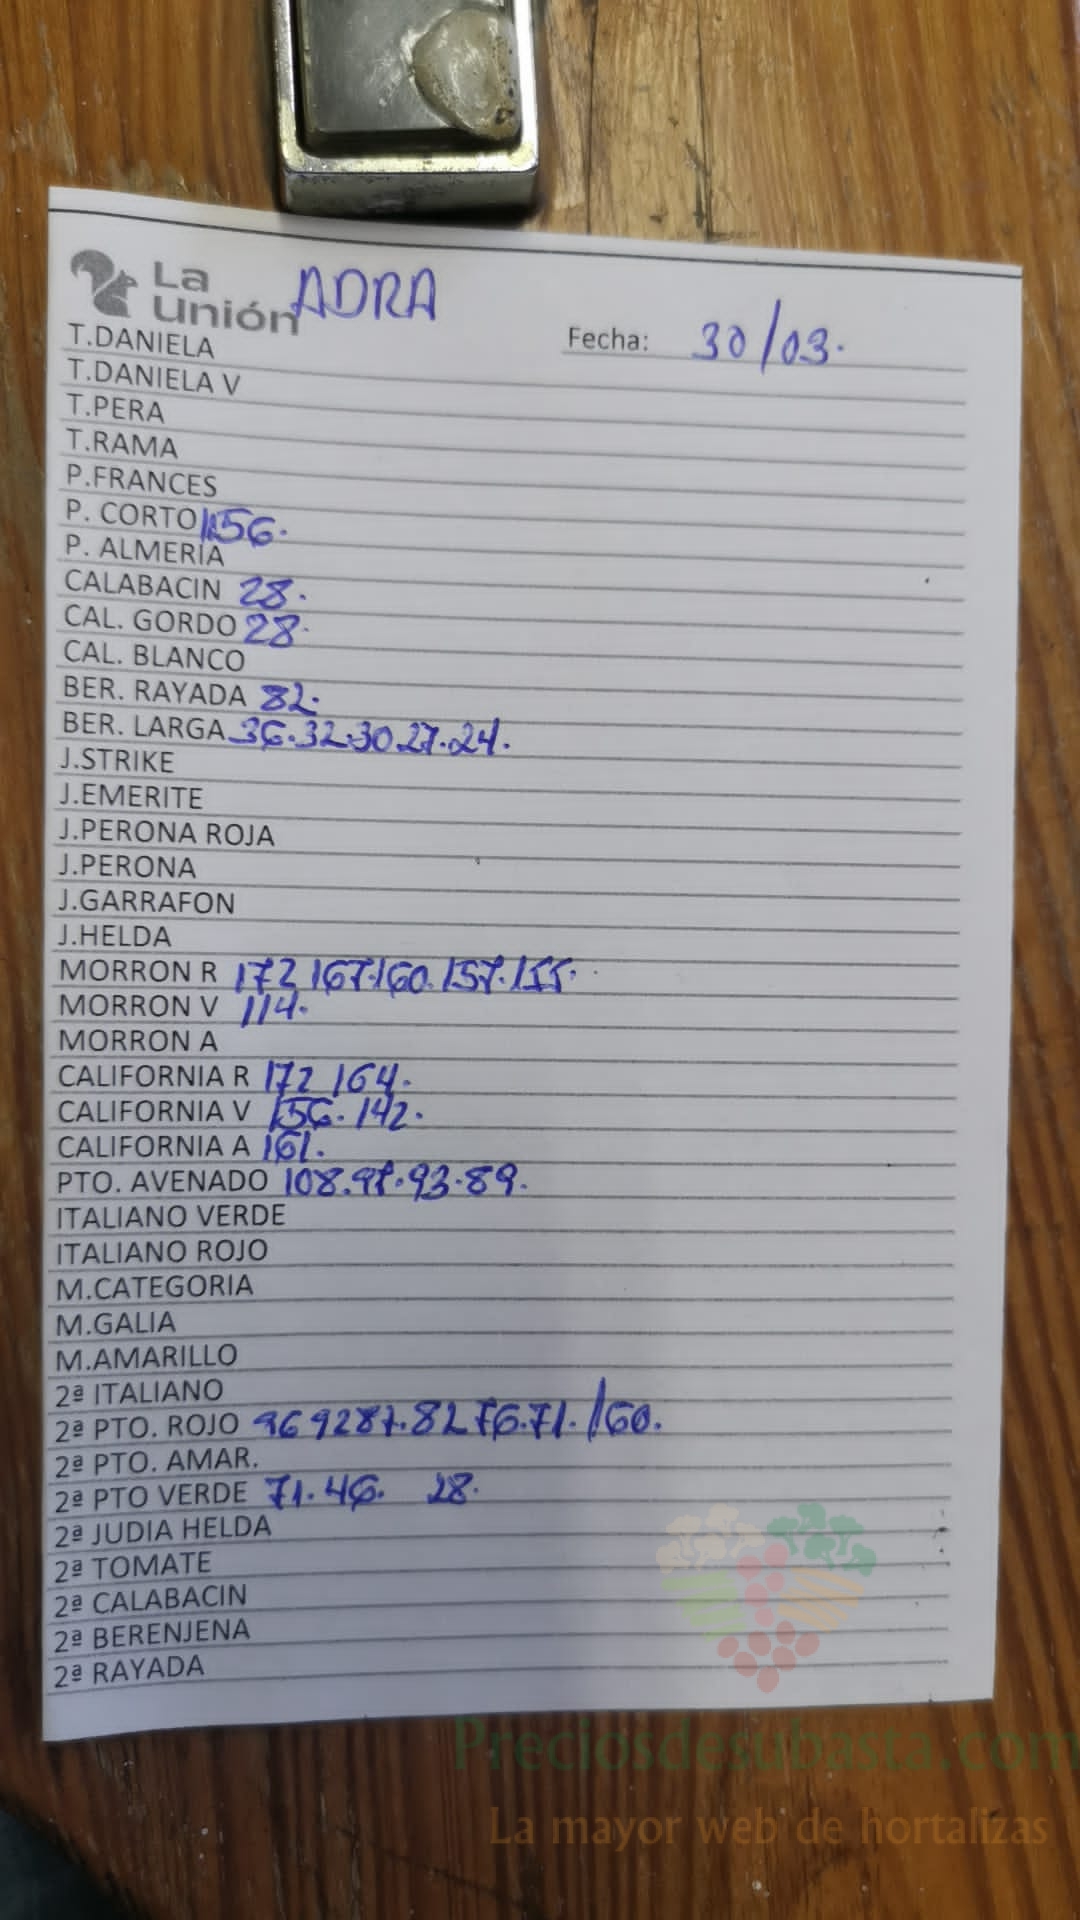 La Unión ADRA
Fecha: 30/03.
T.DANIELA
T.DANIELA V
T.PERA
T.RAMA
P.FRANCES
P. CORTO 156.
P. ALMERIA
CALABACIN 28.
CAL. GORDO 28.
CAL. BLANCO
BER. RAYADA 82.
BER. LARGA 36.32.30.27.24.
J.STRIKE
J.EMERITE
J.PERONA ROJA
J.PERONA
J.GARRAFON
J.HELDA
MORRON R 172 167.160.157.155.
MORRON V 114.
MORRON A
CALIFORNIA R 172 164.
CALIFORNIA V 156.142.
CALIFORNIA A 161.
PTO. AVENADO 108.97.93.89.
ITALIANO VERDE
ITALIANO ROJO
M.CATEGORIA
M.GALIA
M.AMARILLO
2ª ITALIANO
2ª PTO. ROJO 96 92 87.82 76.71./60.
2ª PTO. AMAR.
2ª PTO VERDE 71.46. 28.
2ª JUDIA HELDA
2ª TOMATE
2ª CALABACIN
2ª BERENJENA
2ª RAYADA
Preciosdesubasta.com
La mayor web de hortalizas